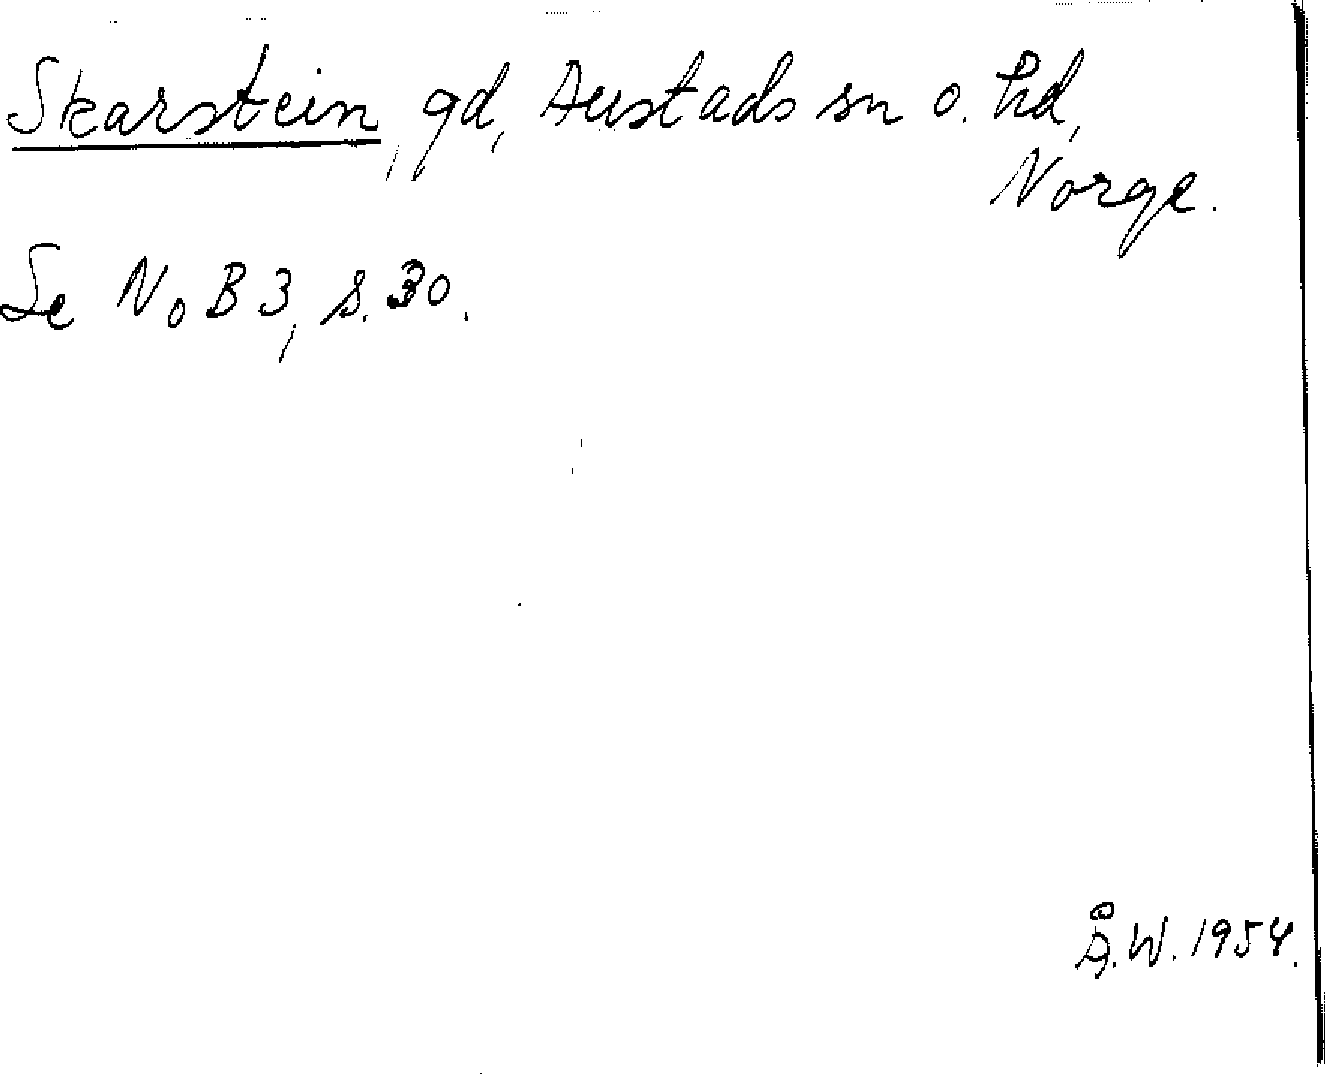 Skarstein, gd, Austads sn o. hd,
Norge.
Se NoB 3, s. 30.
Å.W. 1954.